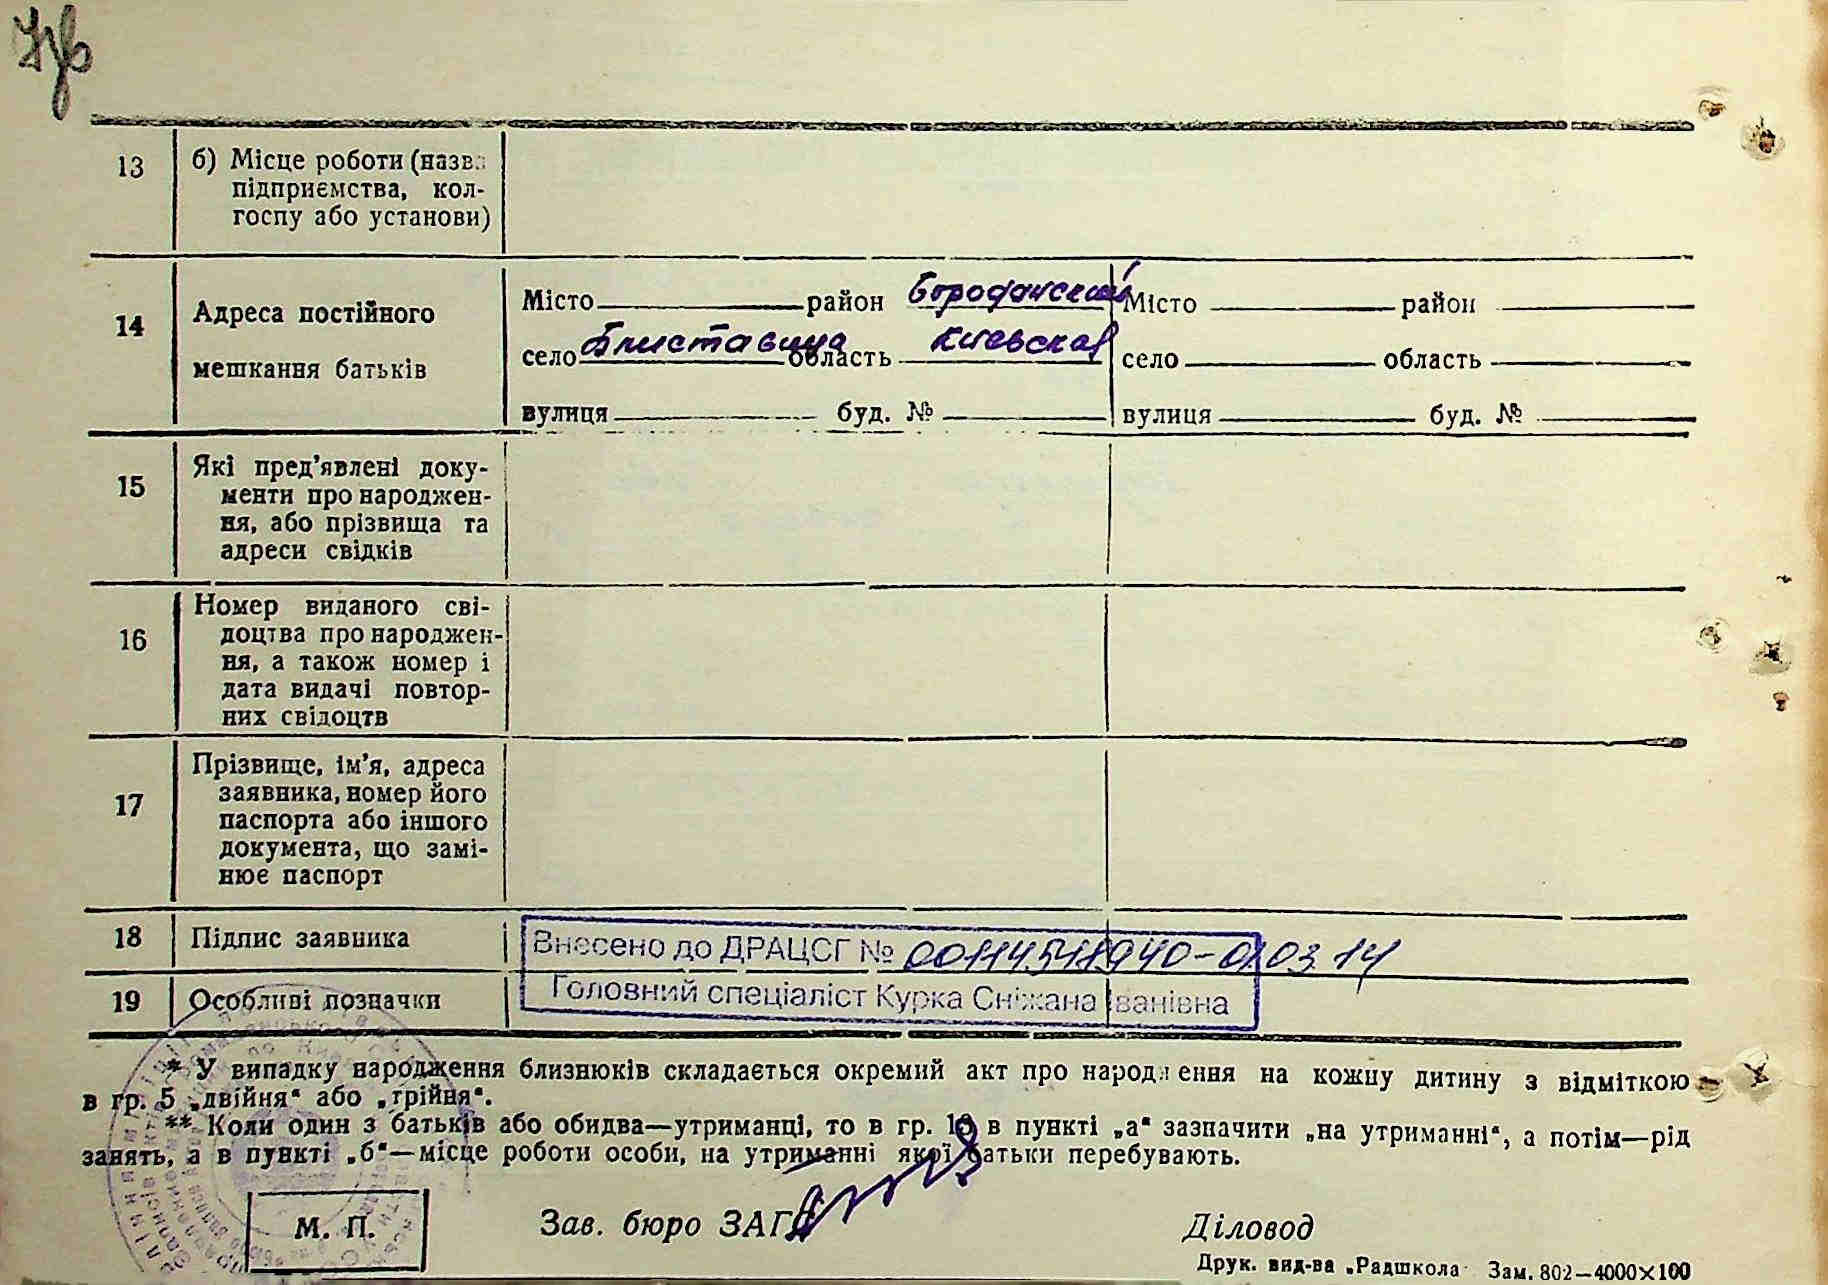 13
б) Місце роботи (назва
підприємства, кол-
госпу або установи)
14
Адреса постійного
мешкання батьків
Місто район Бородянский
село Блиставица область Киевская
вулиця буд. №
Місто район
село область
вулиця буд. №
15
Які пред'явлені доку-
менти про народжен-
ня, або прізвища та
адреси свідків
16
Номер виданого сві-
доцтва про народжен-
ня, а також номер і
дата видачі повтор-
них свідоцтв
17
Прізвище, ім'я, адреса
заявника, номер його
паспорта або іншого
документа, що замі-
нює паспорт
18
Підпис заявника
Внесено до ДРАЦСГ №
19
Особливі позначки
Головний спеціаліст Курка Сніжана Іванівна
* У випадку народження близнюків складається окремий акт про народження на кожну дитину з відміткою
в гр. 5 „двійня“ або „трійня“.
** Коли один з батьків або обидва—утриманці, то в гр. 13 в пункті „а“ зазначити „на утриманні“, а потім—рід
занять, а в пункті „б“—місце роботи особи, на утриманні якої батьки перебувають.
М. П.
Зав. бюро ЗАГС
Діловод
Друк. вид-ва „Радшкола“ Зам. 802—4000×100